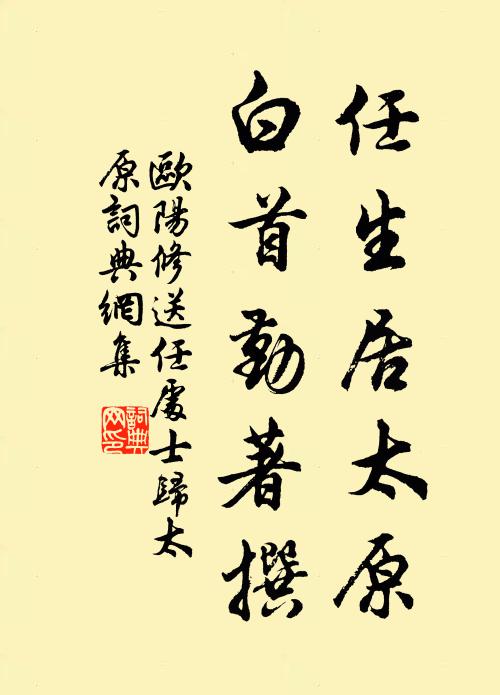 任生居太原
白首勤著撰
歐陽修送任處士歸太
原詞典網集
詞典網印